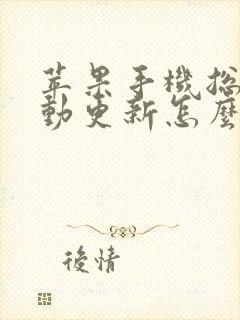 苹果手機总
動更新怎麼
後情